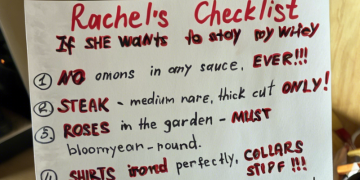 Rachel's Checklist
If SHE WANTS to stay my wifey
① NO onions in any sauce, EVER!!!
② STEAK - medium rare, thick cut ONLY!
③ ROSES in the garden - MUST
bloom year-round.
④ SHIRTS ironed perfectly, COLLARS
STIFF !!!